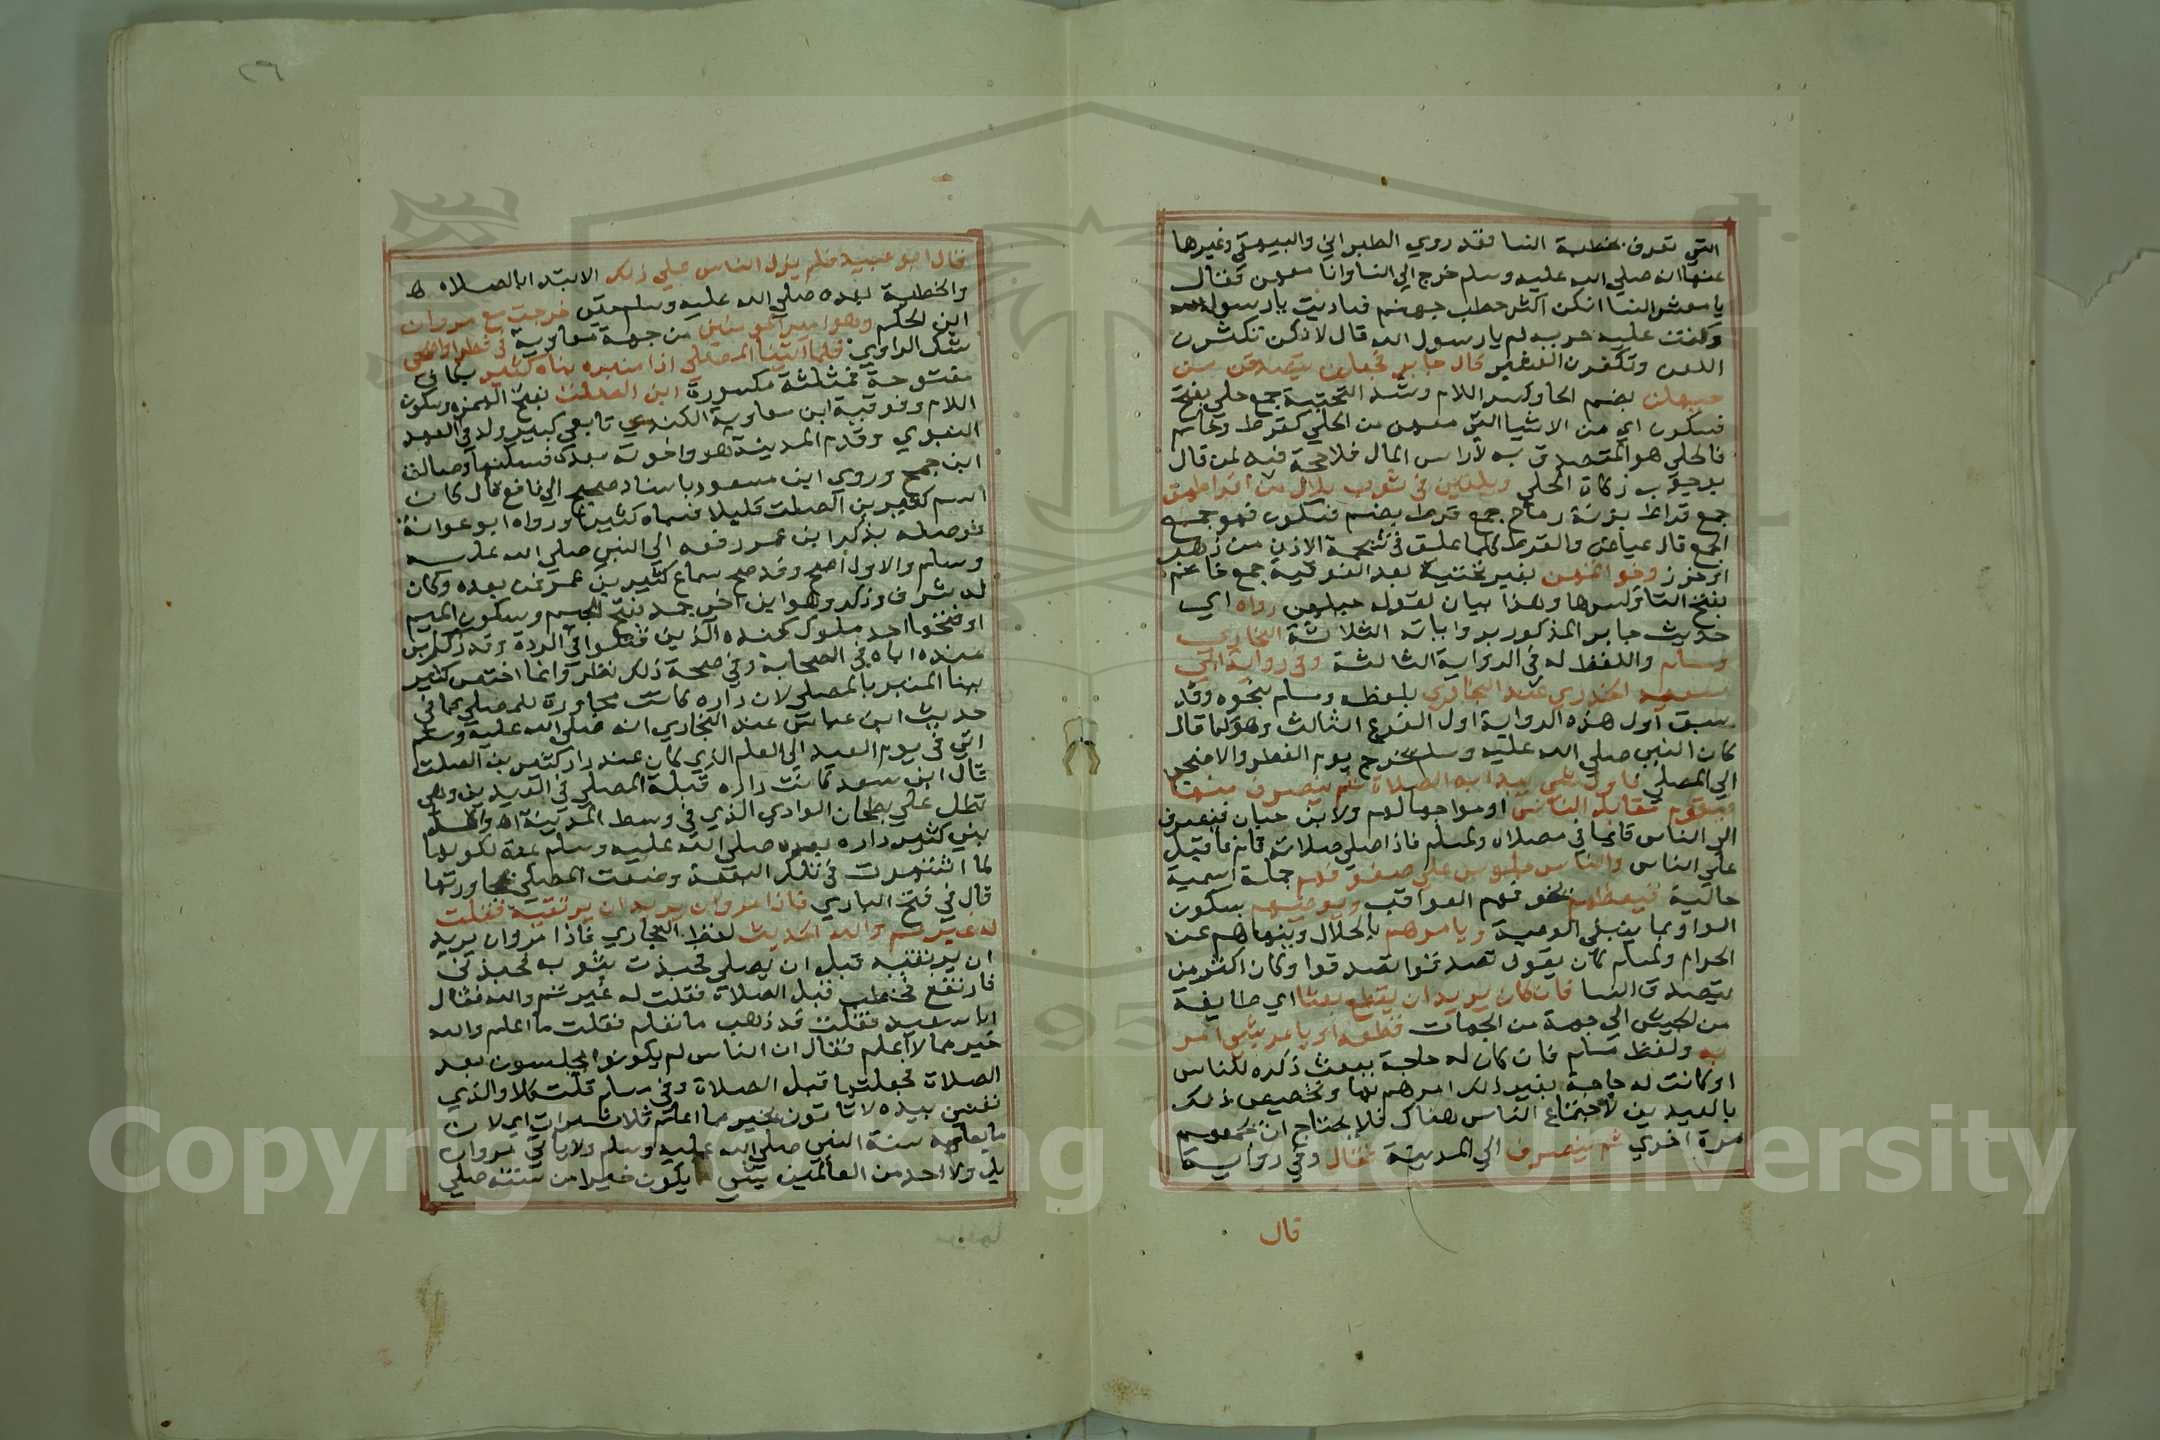 التي تعرف بخطبة النسا فقد روي الطبراني والبيهقي وغيرها
عنها انه صلي الله عليه وسلم خرج الي النسا وانا معهن فقال
يا معشر النسا انكن اكثر حطب جهنم فناديت يا رسول الله
وكنت عليه جريه لم يا رسول الله قال لانكن تكثرن
اللعن وتكفرن العشير قال جابر فجعلن يتصدقن من
حليهن بضم الحا وكسر اللام وشد التحتية جمع حلي بفتح
فسكون اي من الاشيا التي معهن من الحلي كقرط وخاتم
فالحلي هو المتصدق به لا راس المال فلا حجة فيه لمن قال
بوجوب زكاة الحلي ويلقين في ثوب بلال من اقراطهن
جمع قراط بزنة رماح جمع قرط بضم فسكون فهو جمع
الجمع قال عياض والقرط كلما علق في شحمة الاذن من ذهب
او خرز وخواتمهن بغير تحتية بعد الفوقية جمع خاتم
بفتح التا وكسرها وهذا بيان لقوله حليهن رواه اي
حديث جابر المذكور برواياته الثلاثة البخاري
ومسلم واللفظ له في الرواية الثالثة وفي رواية ابي
سعيد الخدري عند البخاري بلفظه ومسلم بنحوه وقد
سبق اول هذه الرواية اول الفرع الثالث وهو كما قال
كان النبي صلي الله عليه وسلم يخرج يوم الفطر والاضحي
الي المصلي فاول شي يبدا به الصلاة ثم ينصرف منها
فيقوم مقابل الناس اي مواجها لهم ولابن حبان فينصرف
الي الناس قائما في مصلاه ولمسلم فاذا صلي صلاته قام فاقبل
علي الناس والناس جلوس علي صفوفهم جملة اسمية
حالية فيعظهم يخوفهم العواقب ويوصيهم بسكون
الواو بما ينبغي الوصية ويامرهم بالحلال وينهاهم عن
الحرام ولمسلم كان يقول تصدقوا تصدقوا وكان اكثر من
يتصدق النسا فان كان يريد ان يقطع بعثا اي طايفة
من الجيش الي جهة من الجهات قطعه او يامر بشي امر
به ولفظ مسلم فان كان له حاجة ببعث ذكره للناس
او كانت له حاجة بغير ذلك امرهم بها وتخصيص ذلك
بالعيدين لاجتماع الناس هناك فلا يحتاج ان يجمعهم
مرة اخري ثم ينصرف الي المدينة فقال وفي رواية
قال
قال ابو سعيد فلم يزل الناس علي ذلك الابتدا بالصلاه
والخطبة بعده صلي الله عليه وسلم حتي خرجت مع مروان
ابن الحكم وهو امير المدينة من جهة معاوية في فطر او اضحي
شك الراوي فلما اتينا المصلي اذا منبر بناه كثير بكاف
مفتوحة فمثلثة مكسورة ابن الصلت بفتح المهملة وسكون
اللام وفوقية ابن معاوية الكندي تابعي كبير ولد في العهد
النبوي وقدم المدينة هو واخوته بعده فسكنها وحالف
ابن جمح وروي ابن سعد باسناد صحيح الي نافع قال كان
اسم كثير بن الصلت قليلا فسماه كثيرا ورواه ابو عوانة
فوصله بذكر ابن عمر رفعه الي النبي صلي الله عليه
وسلم والاول اصح وقد صح سماع كثير بن عمر فمن بعده وكان
له شرف وذكر وهو ابن اخي جمد بفتح الجيم وسكون الميم
او فتحها احد ملوك كندة الذين قتلوا في الردة وقد ذكر ابن
منده اباه في الصحابة وفي صحة ذلك نظر وانما اختص كثير
ببنا المنبر بالمصلي لان داره كانت مجاورة للمصلي كما في
حديث ابن عباس عند البخاري انه صلي الله عليه وسلم
اتي في يوم العيد الي العلم الذي كان عند دار كثير بن الصلت
قال ابن سعد كانت داره قبلة المصلي في العيدين وهي
تطل علي بطحان الوادي الذي في وسط المدينة اه
بني كثير داره بعده صلي الله عليه وسلم بمدة لكونها
لما اشتهرت في تلك البقعة وصفت المصلي بمجاورتها
قال في فتح الباري فاذا مروان يريد ان يرتقيه فقلت
له غيرتم والله الحديث لفظ البخاري فاذا مروان يريد
ان يرتقيه قبل ان يصلي فجبذت بثوبه فجبذني
فارتفع فخطب قبل الصلاة فقلت له غيرتم والله فقال
ابا سعيد فقلت قد ذهب ما تعلم فقلت ما اعلم والله
خير مما لا اعلم فقال ان الناس لم يكونوا يجلسون بعد
الصلاة فجعلتها قبل الصلاة وفي مسلم قلت كلا والذي
نفسي بيده لا تاتون بخير مما اعلم ثلاث مرات اي لان
ما يعلمه سنة النبي صلي الله عليه وسلم ولا ياتي مروان
بل ولا احد من العالمين بشي يكون خيرا من سنته صلي
Copyright © King Saud University